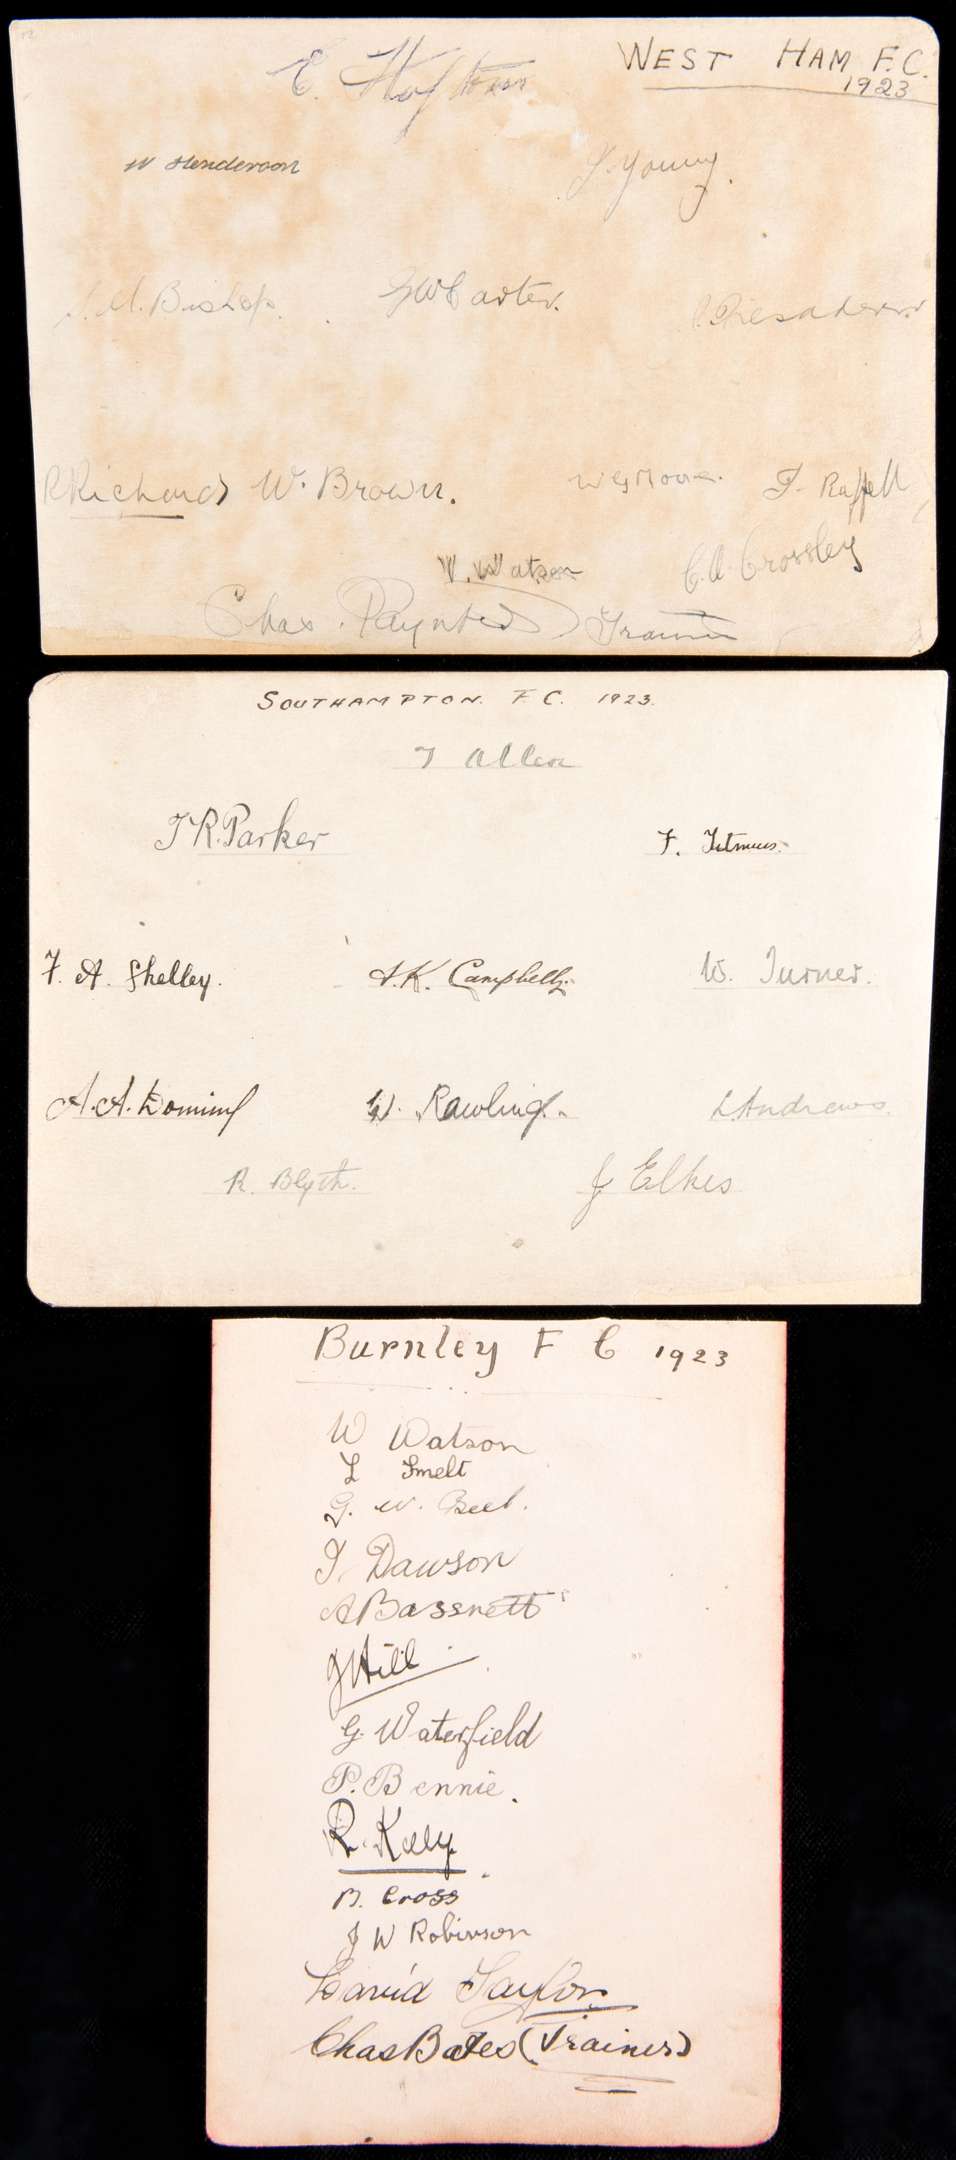 WEST HAM F.C.
1923
E. Hufton
W Henderson
J. Young.
S. M. Bishop.
G W Carter.
Tresadern
Richards
W. Brown.
W G Moore.
J. Ruffell
V. Watson
C. A. Crossley
Chas. Paynter
Trainer
SOUTHAMPTON. F.C. 1923.
T Allen
T R. Parker
F. Titmuss.
F. A. Shelley.
A. K. Campbell.
W. Turner.
A. A. Dominy
W. Rawlings.
L Andrews.
R. Blyth.
J Elkes
Burnley F C 1923
W Watson
L Smelt
G. W. Beel.
J. Dawson
A Bassnett
J Hill
G. Waterfield
P. Bennie.
R. Kelly.
B. Cross
J W Robinson
David Taylor
Chas Bates (Trainer)